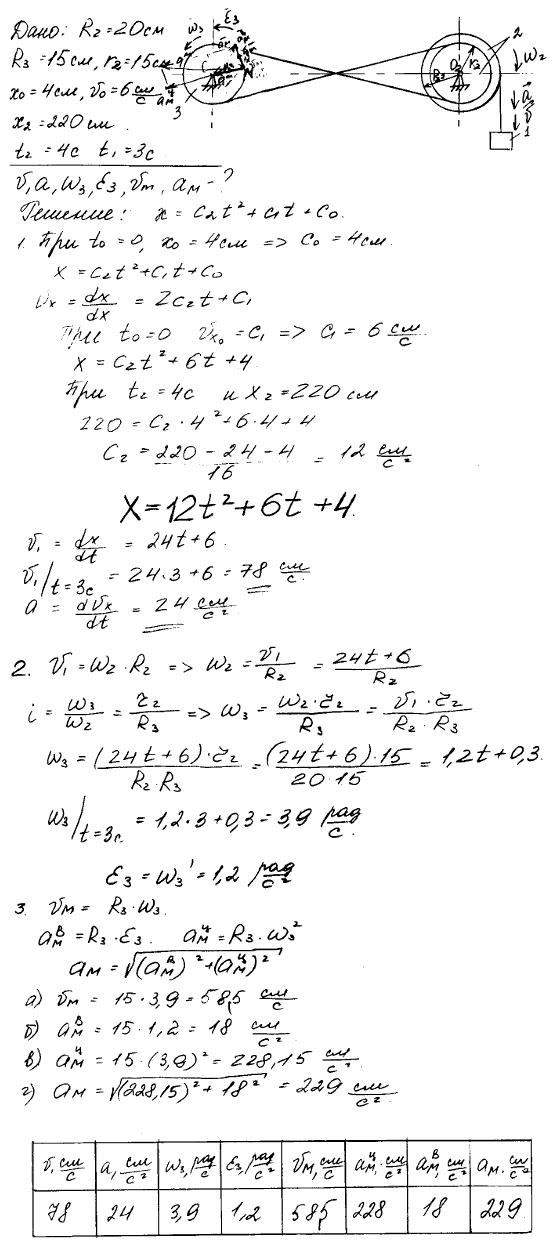 Дано: R₂=20см
R₃=15см, r₂=15см
x₀=4см, v₀=6 см/с
x₂=220см
t₂=4с t₁=3с
v, a, ω₃, ε₃, vм, aм-?
ω₃ ε₃
3
O₂ r₂ R₂
2
ω₂
a
v
1
Решение: x = C₂t²+C₁t+C₀.
1. При t₀=0, x₀=4см => C₀=4см.
x=C₂t²+C₁t+C₀
vx = dx/dx = 2C₂t+C₁
При t₀=0 vx₀=C₁ => C₁=6 см/с
x=C₂t²+6t+4
При t₂=4с и x₂=220 см
220=C₂·4²+6·4+4
C₂=(220-24-4)/16 = 12 см/с²
x=12t²+6t+4.
v₁ = dx/dt = 24t+6.
v₁/t=3с = 24·3+6=78 см/с.
a = dvx/dt = 24 см/с²
2. v₁=ω₂·R₂ => ω₂=v₁/R₂ = (24t+6)/R₂
i=ω₃/ω₂=r₂/R₃ => ω₃=(ω₂·r₂)/R₃=(v₁·r₂)/(R₂·R₃)
ω₃=((24t+6)·r₂)/(R₂·R₃)=((24t+6)·15)/(20·15)=1,2t+0,3.
ω₃/t=3с = 1,2·3+0,3=3,9 рад/с.
ε₃=ω₃'=1,2 рад/с²
3. vм = R₃·ω₃.
aмᴮ=R₃·ε₃. aмᶣ=R₃·ω₃²
aм=√((aмᴮ)²+(aмᶣ)²)
а) vм = 15·3,9=58,5 см/с
б) aмᴮ=15·1,2=18 см/с²
в) aмᶣ=15·(3,9)²=228,15 см/с²
г) aм=√((228,15)²+18²) = 229 см/с²
v, см/с a, см/с² ω₃, рад/с ε₃, рад/с² vм, см/с aмᶣ, см/с² aмᴮ, см/с² aм, см/с²
78 24 3,9 1,2 58,5 228 18 229